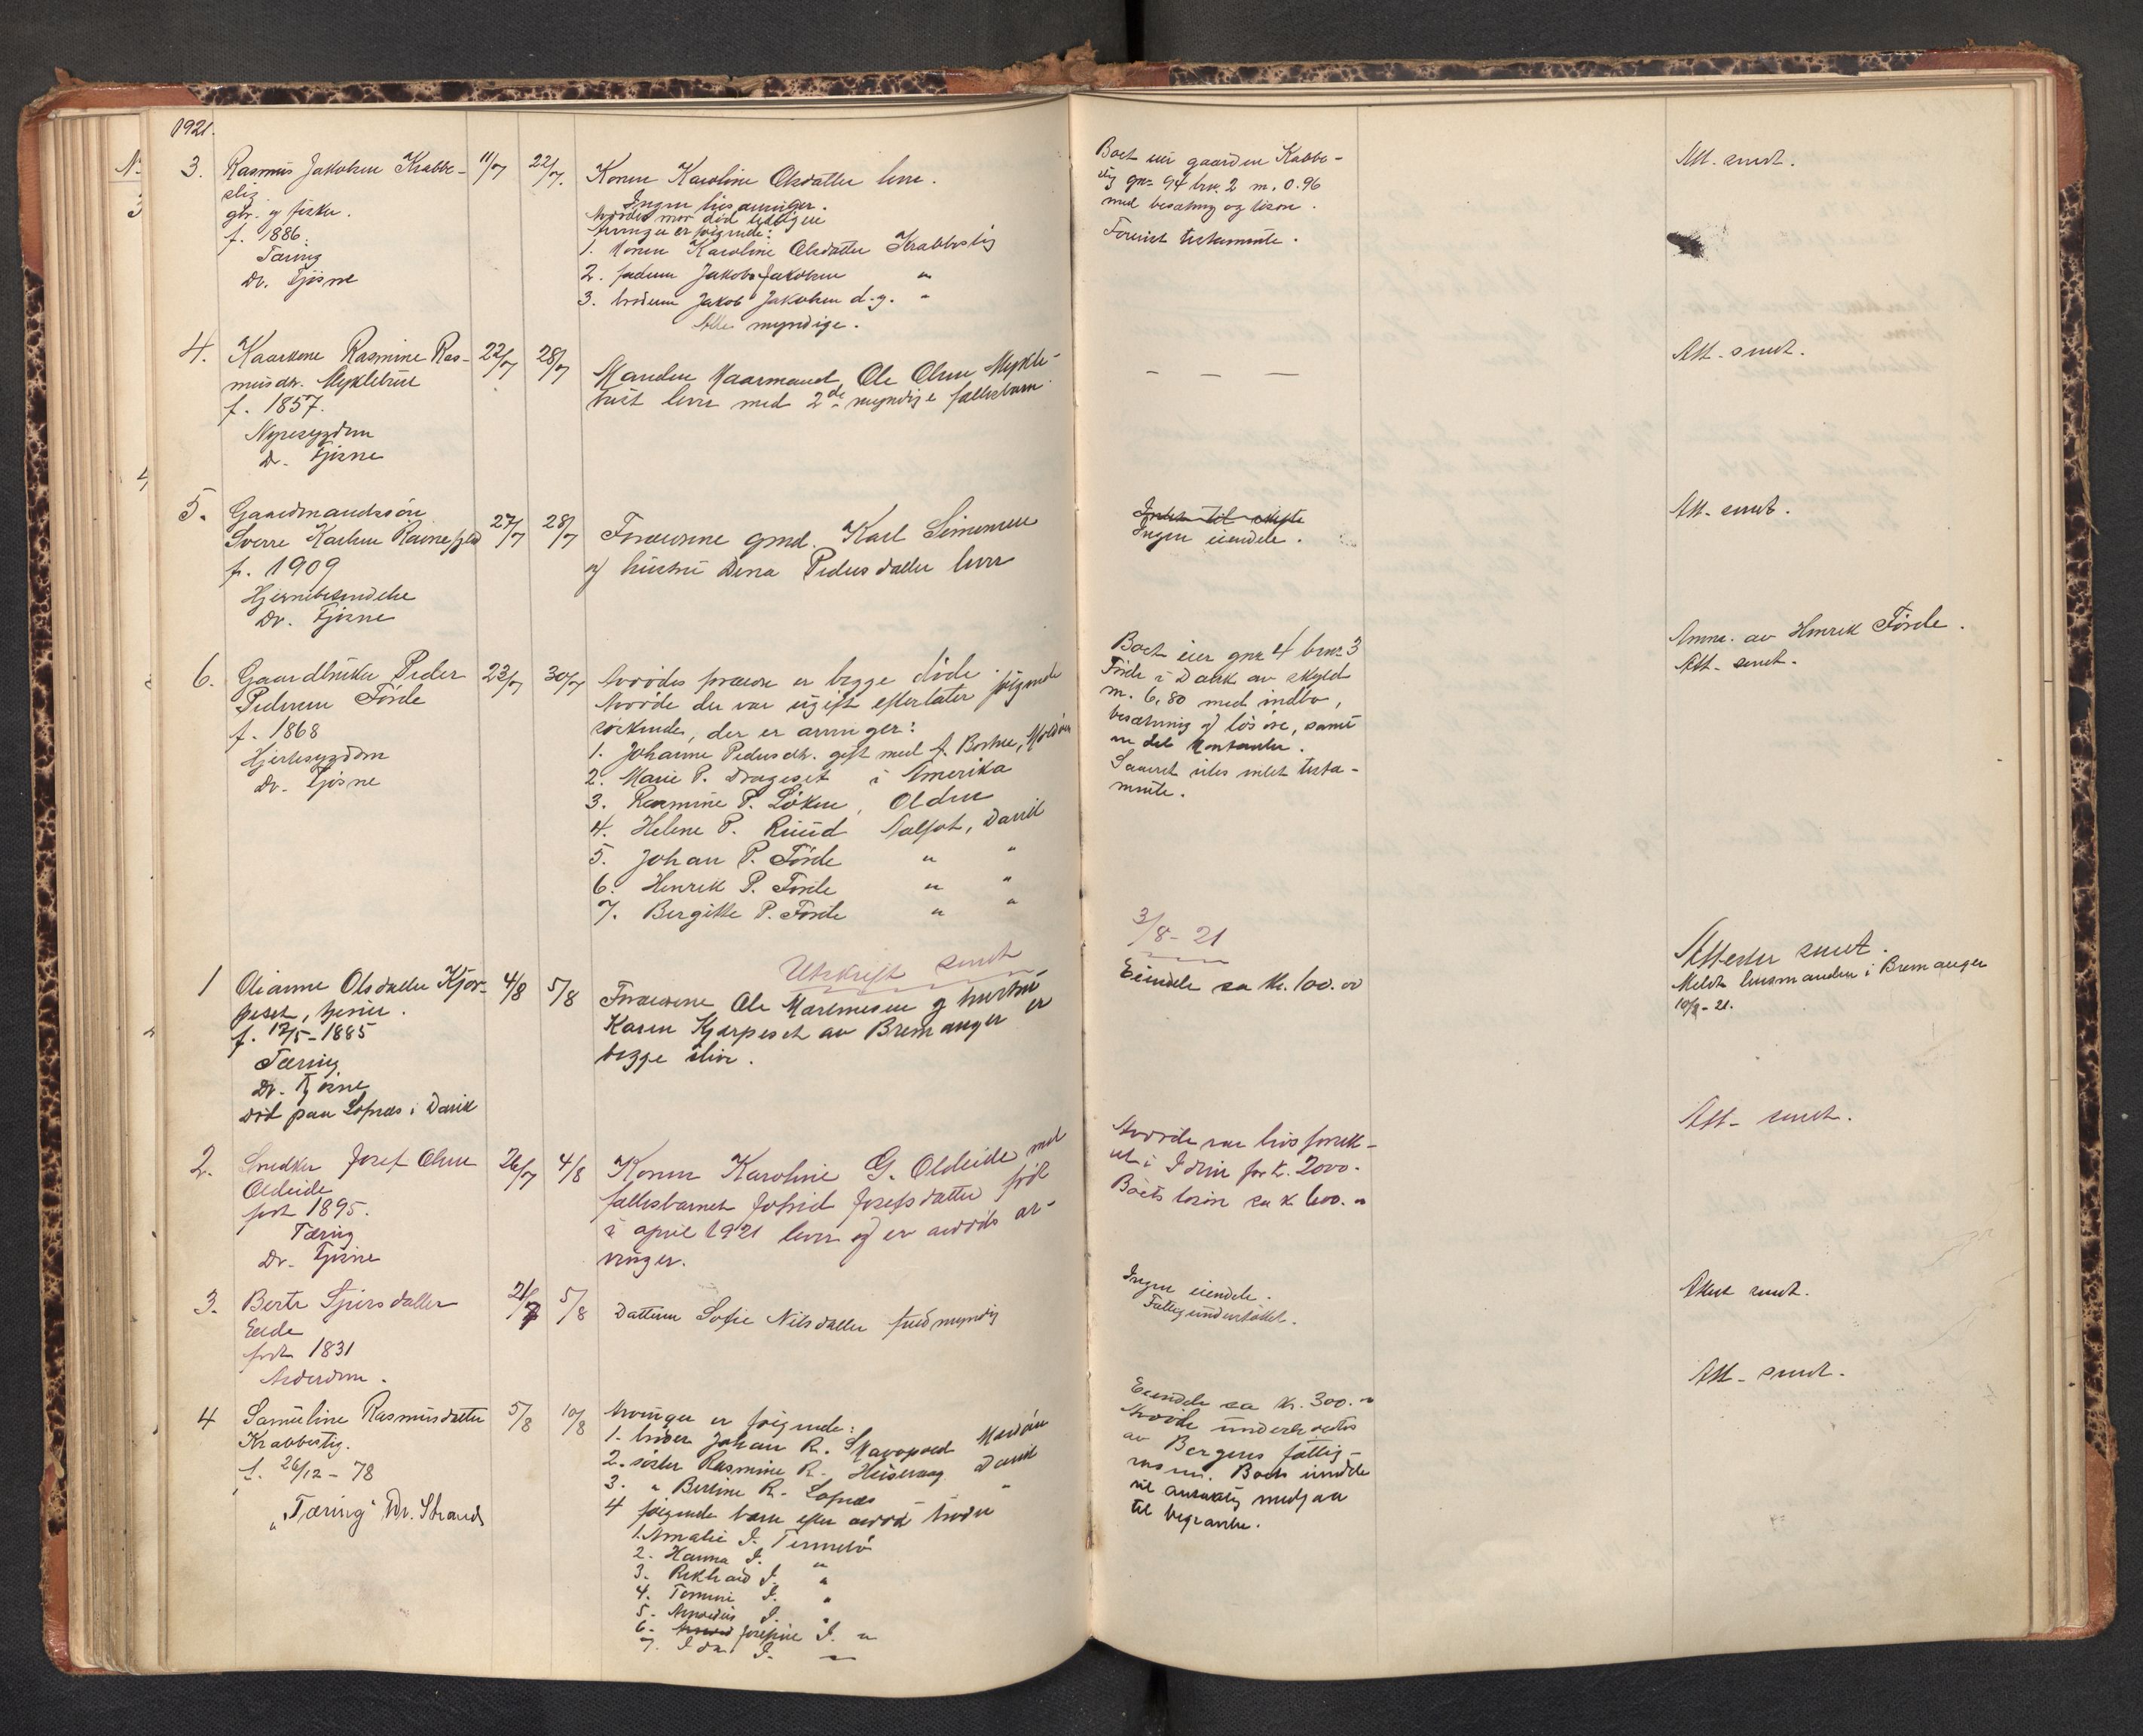 1921.
3. Rasmus Jakobsen Krabbe- 11/7 22/7.
stig
gbr. og fisker.
f. 1886.
Tæring
Dr. Fjørne
Konen Karoline Olsdatter lever.
Ingen livsarvinger.
Avdødes mor død tidligere
Arvinger er følgende:
1. Konen Karoline Olsdatter Krabbestig
2. faderen Jakob Jakobsen "
3. broderen Jakob Jakobsen d.y. "
Alle myndige.
Boet eier gaarden Kabbe-
stig gnr 94 brn. 2 m. 0.96
med besætning og løsøre.
Forevist testamente.
Att. sendt.
4. Kaarkone Rasmine Ras- 22/7 28/7
musdtr. Myklebust
f. 1857.
Nyresygdom
Dr. Fjørne
Manden Kaarmand Ole Olsen Mykle-
bust lever med 2de myndige fællesbarn
— — —
Att. sendt.
5. Gaardmandssøn
Sverre Karlsen Ravne 27/7 28/7
f. 1909
Hjernebetændelse
Dr. Fjørne
Forældrene gmd. Karl Simonsen
og hustru Dena Pedersdatter lever
Intet til skifte
Ingen eiendele.
Att. sendt.
6. Gaardbruker Peder 23/7 30/7
Pedersen Førde
f. 1868
Hjertesygdom
Dr. Fjørne
Avdødes forældre er begge døde.
Avdøde der var ugift efterlater følgende
søskende, der er arvinger:
1. Johanne Pedersdtr. gift med A. Bortne, Moldøen
2. Marie P. Drageset i Amerika
3. Rasmine P. Løken, Olden
4. Helene P. Ruud Aalfot, Davik
5. Johan P. Førde " "
6. Henrik P. Førde " "
7. Bergitte P. Førde " "
Utskrift sendt
Boet eier gnr 4 brnr 3
Førde i Davik av skyld
m. 6,80 med indbo,
besætning og løsøre, samt
en del kontanter.
Saavidt vites intet testa-
mente.
3/8-21
Anm. av Henrik Førde.
Att. sendt.
1 Olianne Olsdatter Kjør- 4/8 5/8
peset, tjener.
f. 17/5-1885
Tæring
Dr. Fjørne
død paa Lofnæs i Davik
Forældrene Ole Martinesen og hustru
Karen Kjørpeset av Bremanger er
begge ilive.
Eiendele ca kr. 100.00
Attester sendt.
Meldt lensmanden i Bremanger
10/8-21.
2. Snedker Josef Olsen 26/7 4/8
Oldeide
født 1895.
Tæring
Dr. Fjørne
Konen Karoline G. Oldeide med
fællesbarnet Jofrid Josefsdatter født
i april 1921 lever og er avdødes ar-
vinger.
Avdøde var livsforsik-
ret i Idun for k. 2000.
Boets løsøre ca k. 600.
Att. sendt.
3. Berte Sjursdatter 21/7 5/8
Eede
født 1831
Alderdom.
Datteren Sofie Nilsdatter fuldmyndig
Ingen eiendele.
Fattigunderstøttet.
Attest sendt.
4 Samueline Rasmusdatter 5/8 10/8
Krabbestig.
f. 26/12-78
„Tæring" Dr. Strand
Arvinger er følgende:
1. broder Johan R. Skavøpold Moldøen
2. søster Rasmine R. Husevaag Davik
3. " Bertine R. Lofnæs "
4 følgende barn efter avdød broder
1. Amalie I. Tennebø
2. Hanna I. "
3. Rikhard I. "
4. Tomine I. "
5. I. "
6. Josefine I. "
7. Ida I. "
Eiendele ca kr. 300.
Avdøde underholdtes
av Bergens fattig-
væsen. Boets eiendele
vil antakelig medgaa
til begravelse.
Att. sendt.